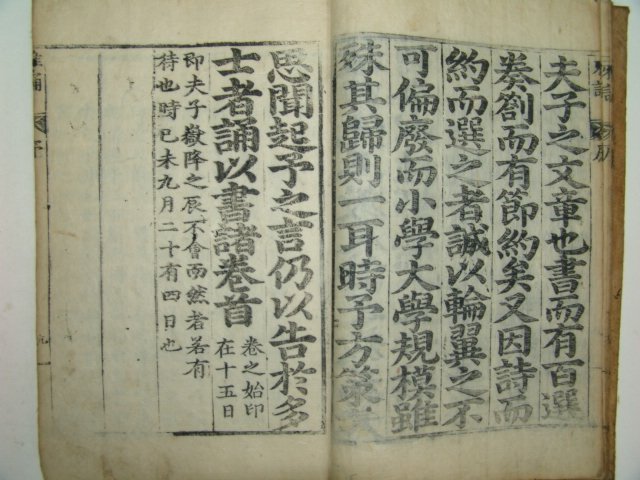 雅誦 序
夫子之文章也書而有百選
奏劄而有節約矣又因詩而
約而選之者誠以輪翼之不
可偏廢而小學大學規模雖
殊其歸則一耳時予方
思聞起予之言仍以告於多
士者誦以書諸卷首
卷之始印
在十五日
即夫子嶽降之辰不會而然者若有
待也時己未九月二十有四日也
雅誦 序